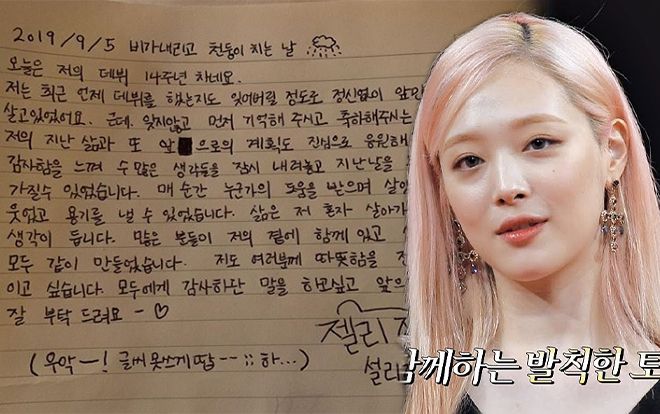 2019/9/5 비가내리고 천둥이 치는 날
오늘은 저의 데뷔 14주년 차네요.
저는 최근 언제 데뷔를 했는지도 잊어버릴 정도로 정신없이 앞만
살고있었어요. 근데. 잊지않고 먼저 기억해 주시고 축하해주시는
저의 지난 삶과 또 앞으로의 계획도 진심으로 응원해
감사함을 느껴 수 많은 생각들을 잠시 내려놓고 지난날을
가질수 있었습니다. 매 순간 누군가의 도움을 받으며 살았
웃었고 용기를 낼 수 있었습니다. 삶은 저 혼자 살아가
생각이 듭니다. 많은 분들이 저의 곁에 함께 있고
모두 같이 만들었습니다. 저도 여러분께 따뜻함을
이고 싶습니다. 모두에게 감사하단 말을 하고싶고 앞으
잘 부탁 드려요 - ♡
젤리
설리
(우악-! 글씨못쓰게땀--;; 하...)
함께하는 발칙한 토